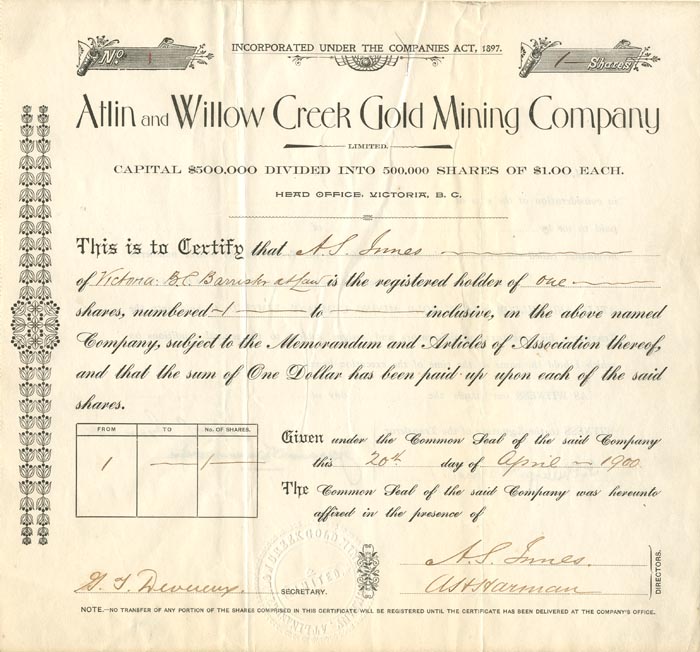 No. 1
INCORPORATED UNDER THE COMPANIES ACT, 1897.
1 Shares
Atlin and Willow Creek Gold Mining Company
LIMITED.
CAPITAL $500.000 DIVIDED INTO 500,000 SHARES OF $1.00 EACH.
HEAD OFFICE, VICTORIA, B. C.
This is to Certify that A. S. Innes
of Victoria. B.C. Barrister at Law is the registered holder of one
shares, numbered 1 to inclusive, in the above named
Company, subject to the Memorandum and Articles of Association thereof,
and that the sum of One Dollar has been paid up upon each of the said
shares.
FROM TO No. OF SHARES.
1 — 1
Given under the Common Seal of the said Company
this 20th day of April 1900.
The Common Seal of the said Company was hereunto
affixed in the presence of
A. S. Innes.
Harman
DIRECTORS.
SECRETARY.
NOTE.—NO TRANSFER OF ANY PORTION OF THE SHARES COMPRISED IN THIS CERTIFICATE WILL BE REGISTERED UNTIL THE CERTIFICATE HAS BEEN DELIVERED AT THE COMPANY'S OFFICE.